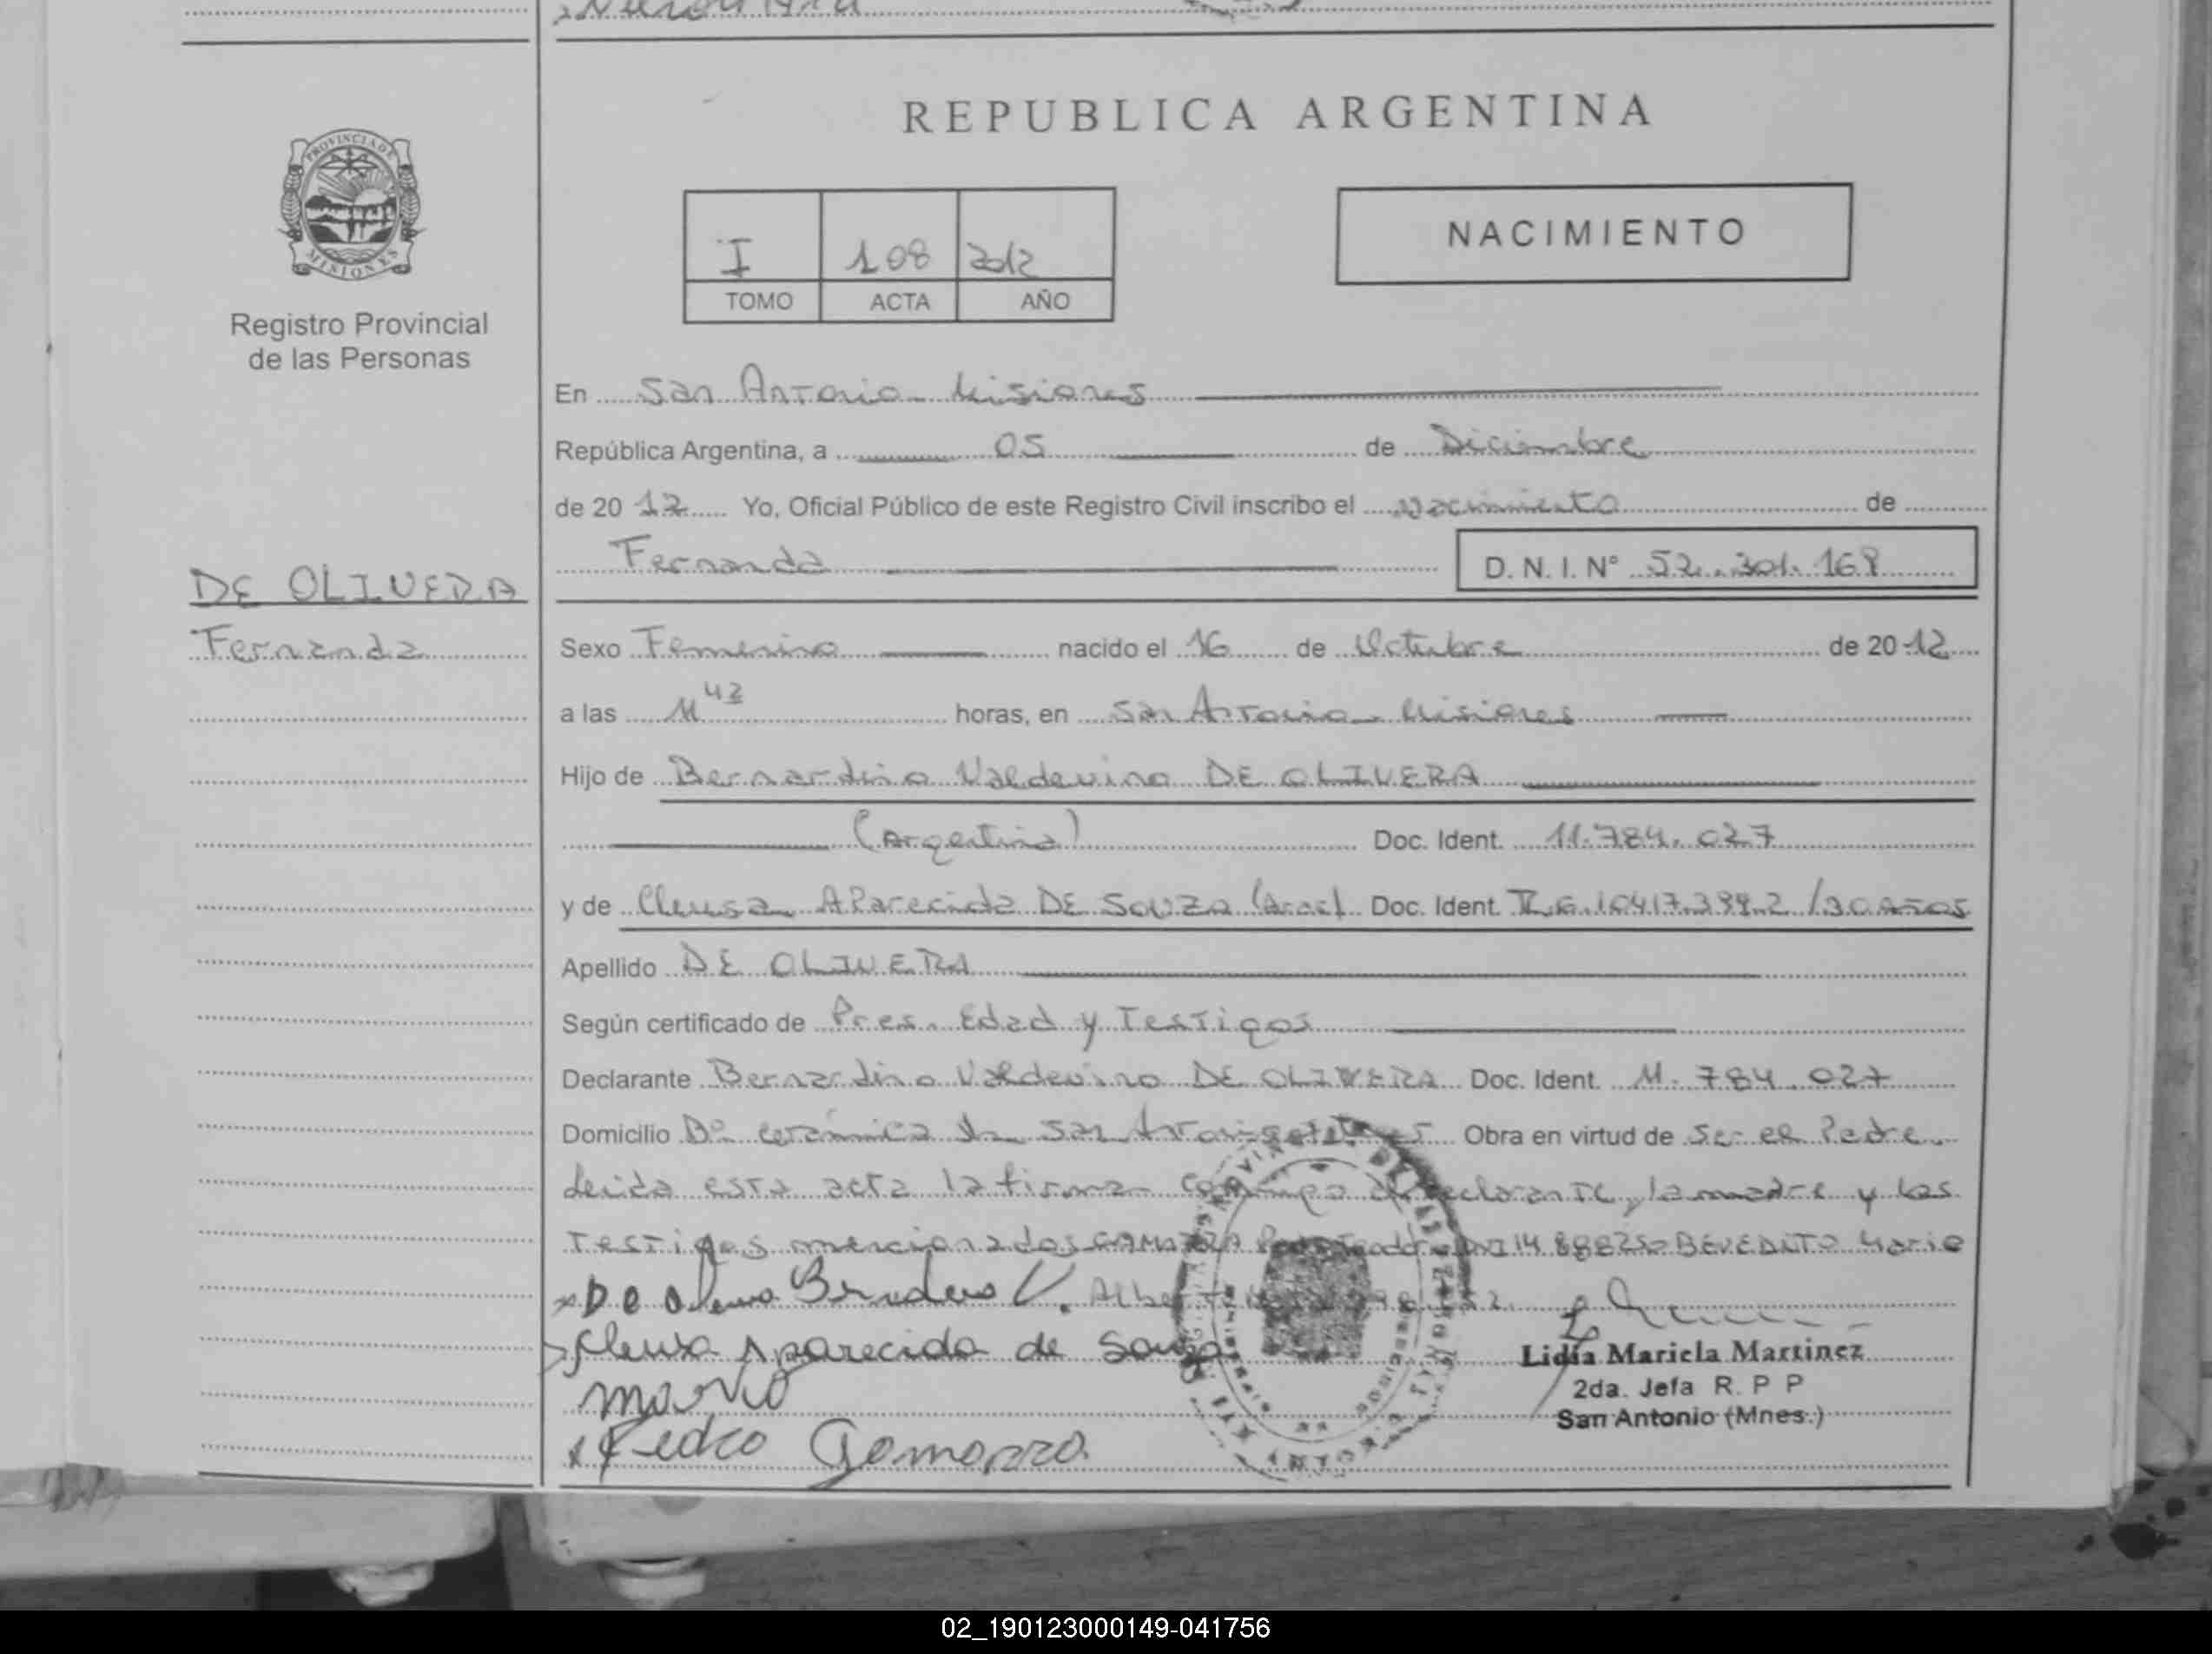 REPUBLICA ARGENTINA
PROVINCIA DE
MISIONES
Registro Provincial
de las Personas
I 108 2012
TOMO ACTA AÑO
NACIMIENTO
En San Antonio Misiones
República Argentina, a 05 de Diciembre
de 20 12 Yo, Oficial Público de este Registro Civil inscribo el nacimiento de
Fernanda D. N. I. N° 52.301.168
DE OLIVERA
Fernanda
Sexo Femenino nacido el 16 de Octubre de 20 12
a las 11 43 horas, en San Antonio Misiones
Hijo de Bernardino Valdevino DE OLIVERA
(Argentino) Doc. Ident. 11.784.027
y de Cleusa Aparecida DE SOUZA Doc. Ident. /30 Años
Apellido DE OLIVERA
Según certificado de Pres. Edad y Testigos
Declarante Bernardino Valdevino DE OLIVERA Doc. Ident. 11.784.027
Domicilio B° cerámica San Obra en virtud de Ser el Padre.
leida esta acta la firman declarante, la madre y los
Testigos mencionados BENEDITO Mario
De Olivera V.
Cleusa Aparecida de Souza
Mario
x Pedro Gomarra
Lidia Mariela Martinez
2da. Jefa R. P P
San Antonio (Mnes.)
02_190123000149-041756